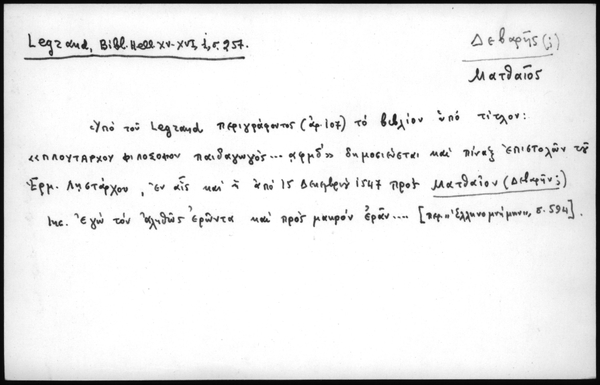 Legrand, Bibl. Hell XV-XVI, i, σ. 257.
Δεβαρῆς (;)
Ματθαῖος
Ὑπὸ τοῦ Legrand περιγράφοντος (ἀρ. 107) τὸ βιβλίον ὑπὸ τίτλον:
«ΠΛΟΥΤΑΡΧΟΥ ΦΙΛΟΣΟΦΟΥ παιδαγωγὸς... ͵αφμδ'» δημοσιεύεται καὶ πίναξ ἐπιστολῶν τοῦ
Ἑρμ. Ληστάρχου, ἐν αἷς καὶ ἡ ἀπὸ 15 Δεκεμβρ 1547 πρὸς Ματθαῖον (Δεβαρῆν;)
Inc. Ἐγὼ τὸν ἀληθῶς ἐρῶντα καὶ πρὸς μακρὸν ἐρᾶν.... [περ. «Ἑλληνομνήμων», σ. 594].